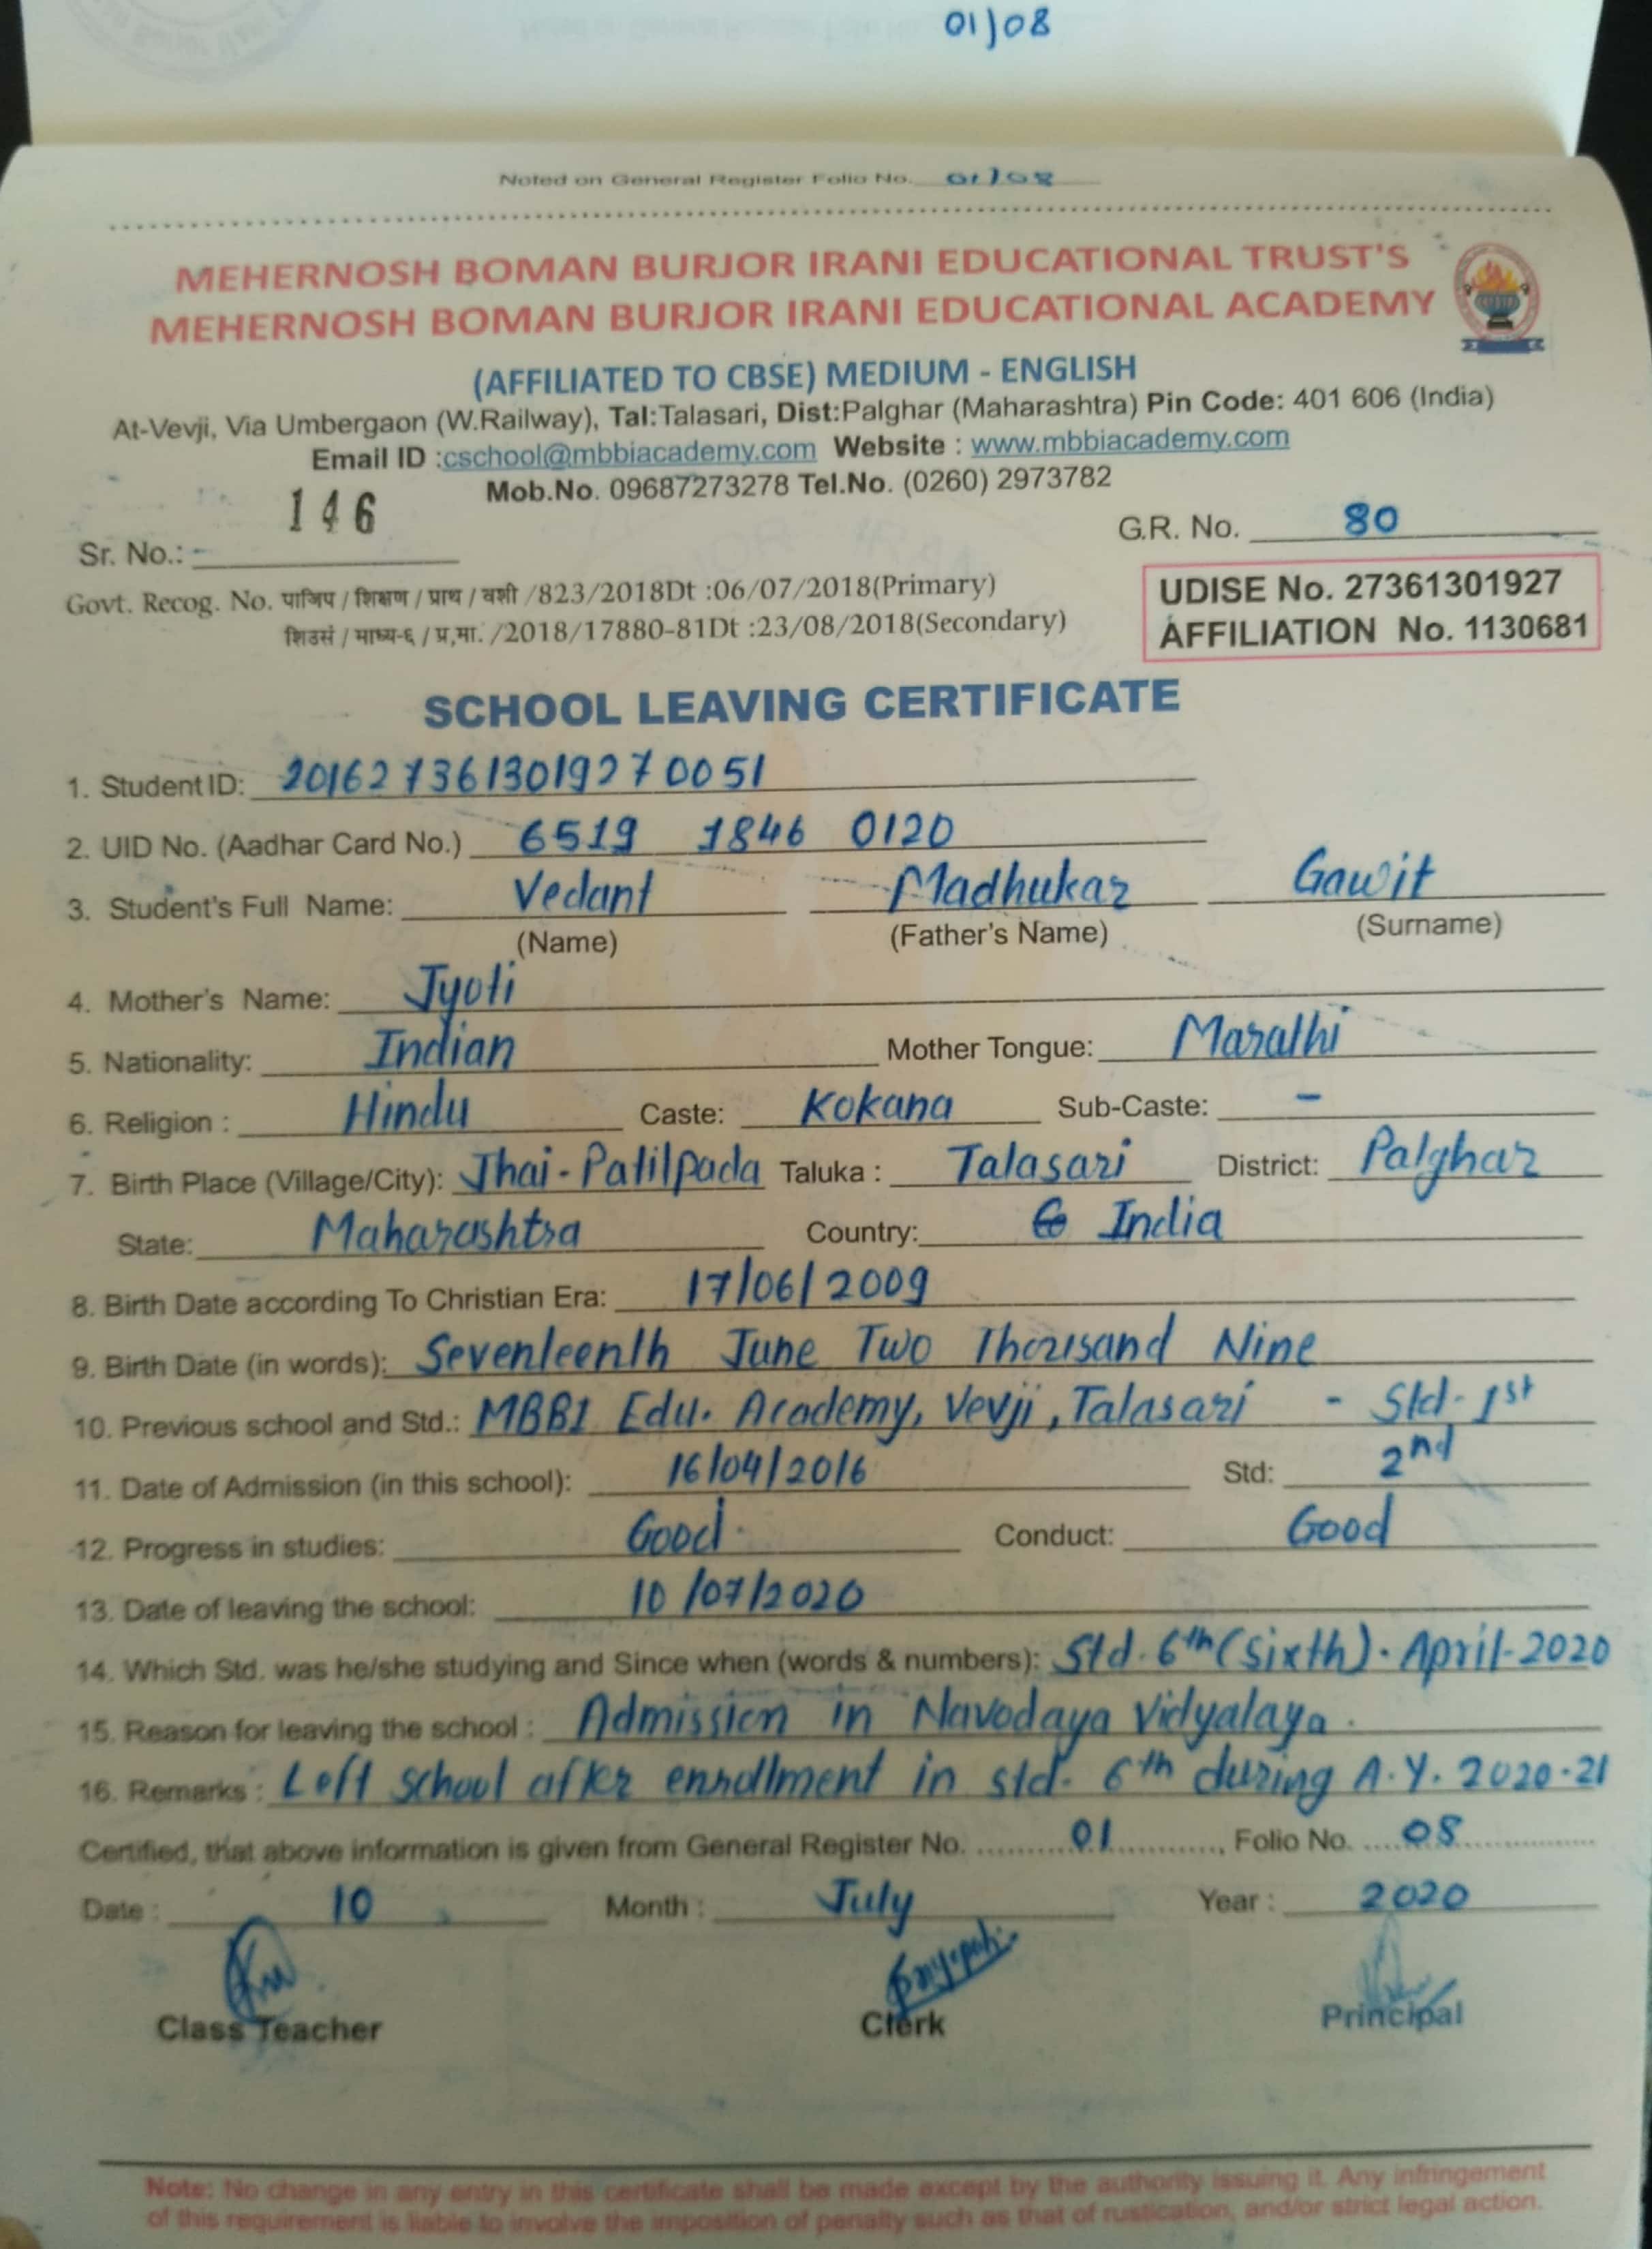 01)08
Noted on General Register Folio No. 01)08
MEHERNOSH BOMAN BURJOR IRANI EDUCATIONAL TRUST'S
MEHERNOSH BOMAN BURJOR IRANI EDUCATIONAL ACADEMY
(AFFILIATED TO CBSE) MEDIUM - ENGLISH
At-Vevji, Via Umbergaon (W.Railway), Tal:Talasari, Dist:Palghar (Maharashtra) Pin Code: 401 606 (India)
Email ID :cschool@mbbiacademy.com Website : www.mbbiacademy.com
Mob.No. 09687273278 Tel.No. (0260) 2973782
Sr. No.:- 146 G.R. No. 80
Govt. Recog. No. पाजिप / शिक्षण / प्राथ / वशी /823/2018Dt :06/07/2018(Primary)
शिउसं / माध्य-६ / प्र,मा. /2018/17880-81Dt :23/08/2018(Secondary)
UDISE No. 27361301927
AFFILIATION No. 1130681
SCHOOL LEAVING CERTIFICATE
1. Student ID: 2016273613019270051
2. UID No. (Aadhar Card No.) 6519 1846 0120
3. Student's Full Name: Vedant Madhukar Gawit
(Name) (Father's Name) (Surname)
4. Mother's Name: Jyoti
5. Nationality: Indian Mother Tongue: Marathi
6. Religion : Hindu Caste: Kokana Sub-Caste: -
7. Birth Place (Village/City): Jhai-Patilpada Taluka : Talasari District: Palghar
State: Maharashtra Country: India
8. Birth Date according To Christian Era: 17/06/2009
9. Birth Date (in words): Seventeenth June Two Thousand Nine
10. Previous school and Std.: MBBI Edu. Academy, Vevji, Talasari - Std-1st
11. Date of Admission (in this school): 16/04/2016 Std: 2nd
12. Progress in studies: Good. Conduct: Good
13. Date of leaving the school: 10/07/2020
14. Which Std. was he/she studying and Since when (words & numbers): Std. 6th (Sixth). April-2020
15. Reason for leaving the school : Admission in Navodaya Vidyalaya.
16. Remarks : Left school after enrollment in std. 6th during A.Y. 2020-21
Certified, that above information is given from General Register No. ......... 01 ............, Folio No. .... 08 ................
Date : 10 Month : July Year : 2020
Class Teacher Clerk Principal
Note: No change in any entry in this certificate shall be made except by the authority issuing it. Any infringement
of this requirement is liable to involve the imposition of penalty such as that of rustication, and/or strict legal action.